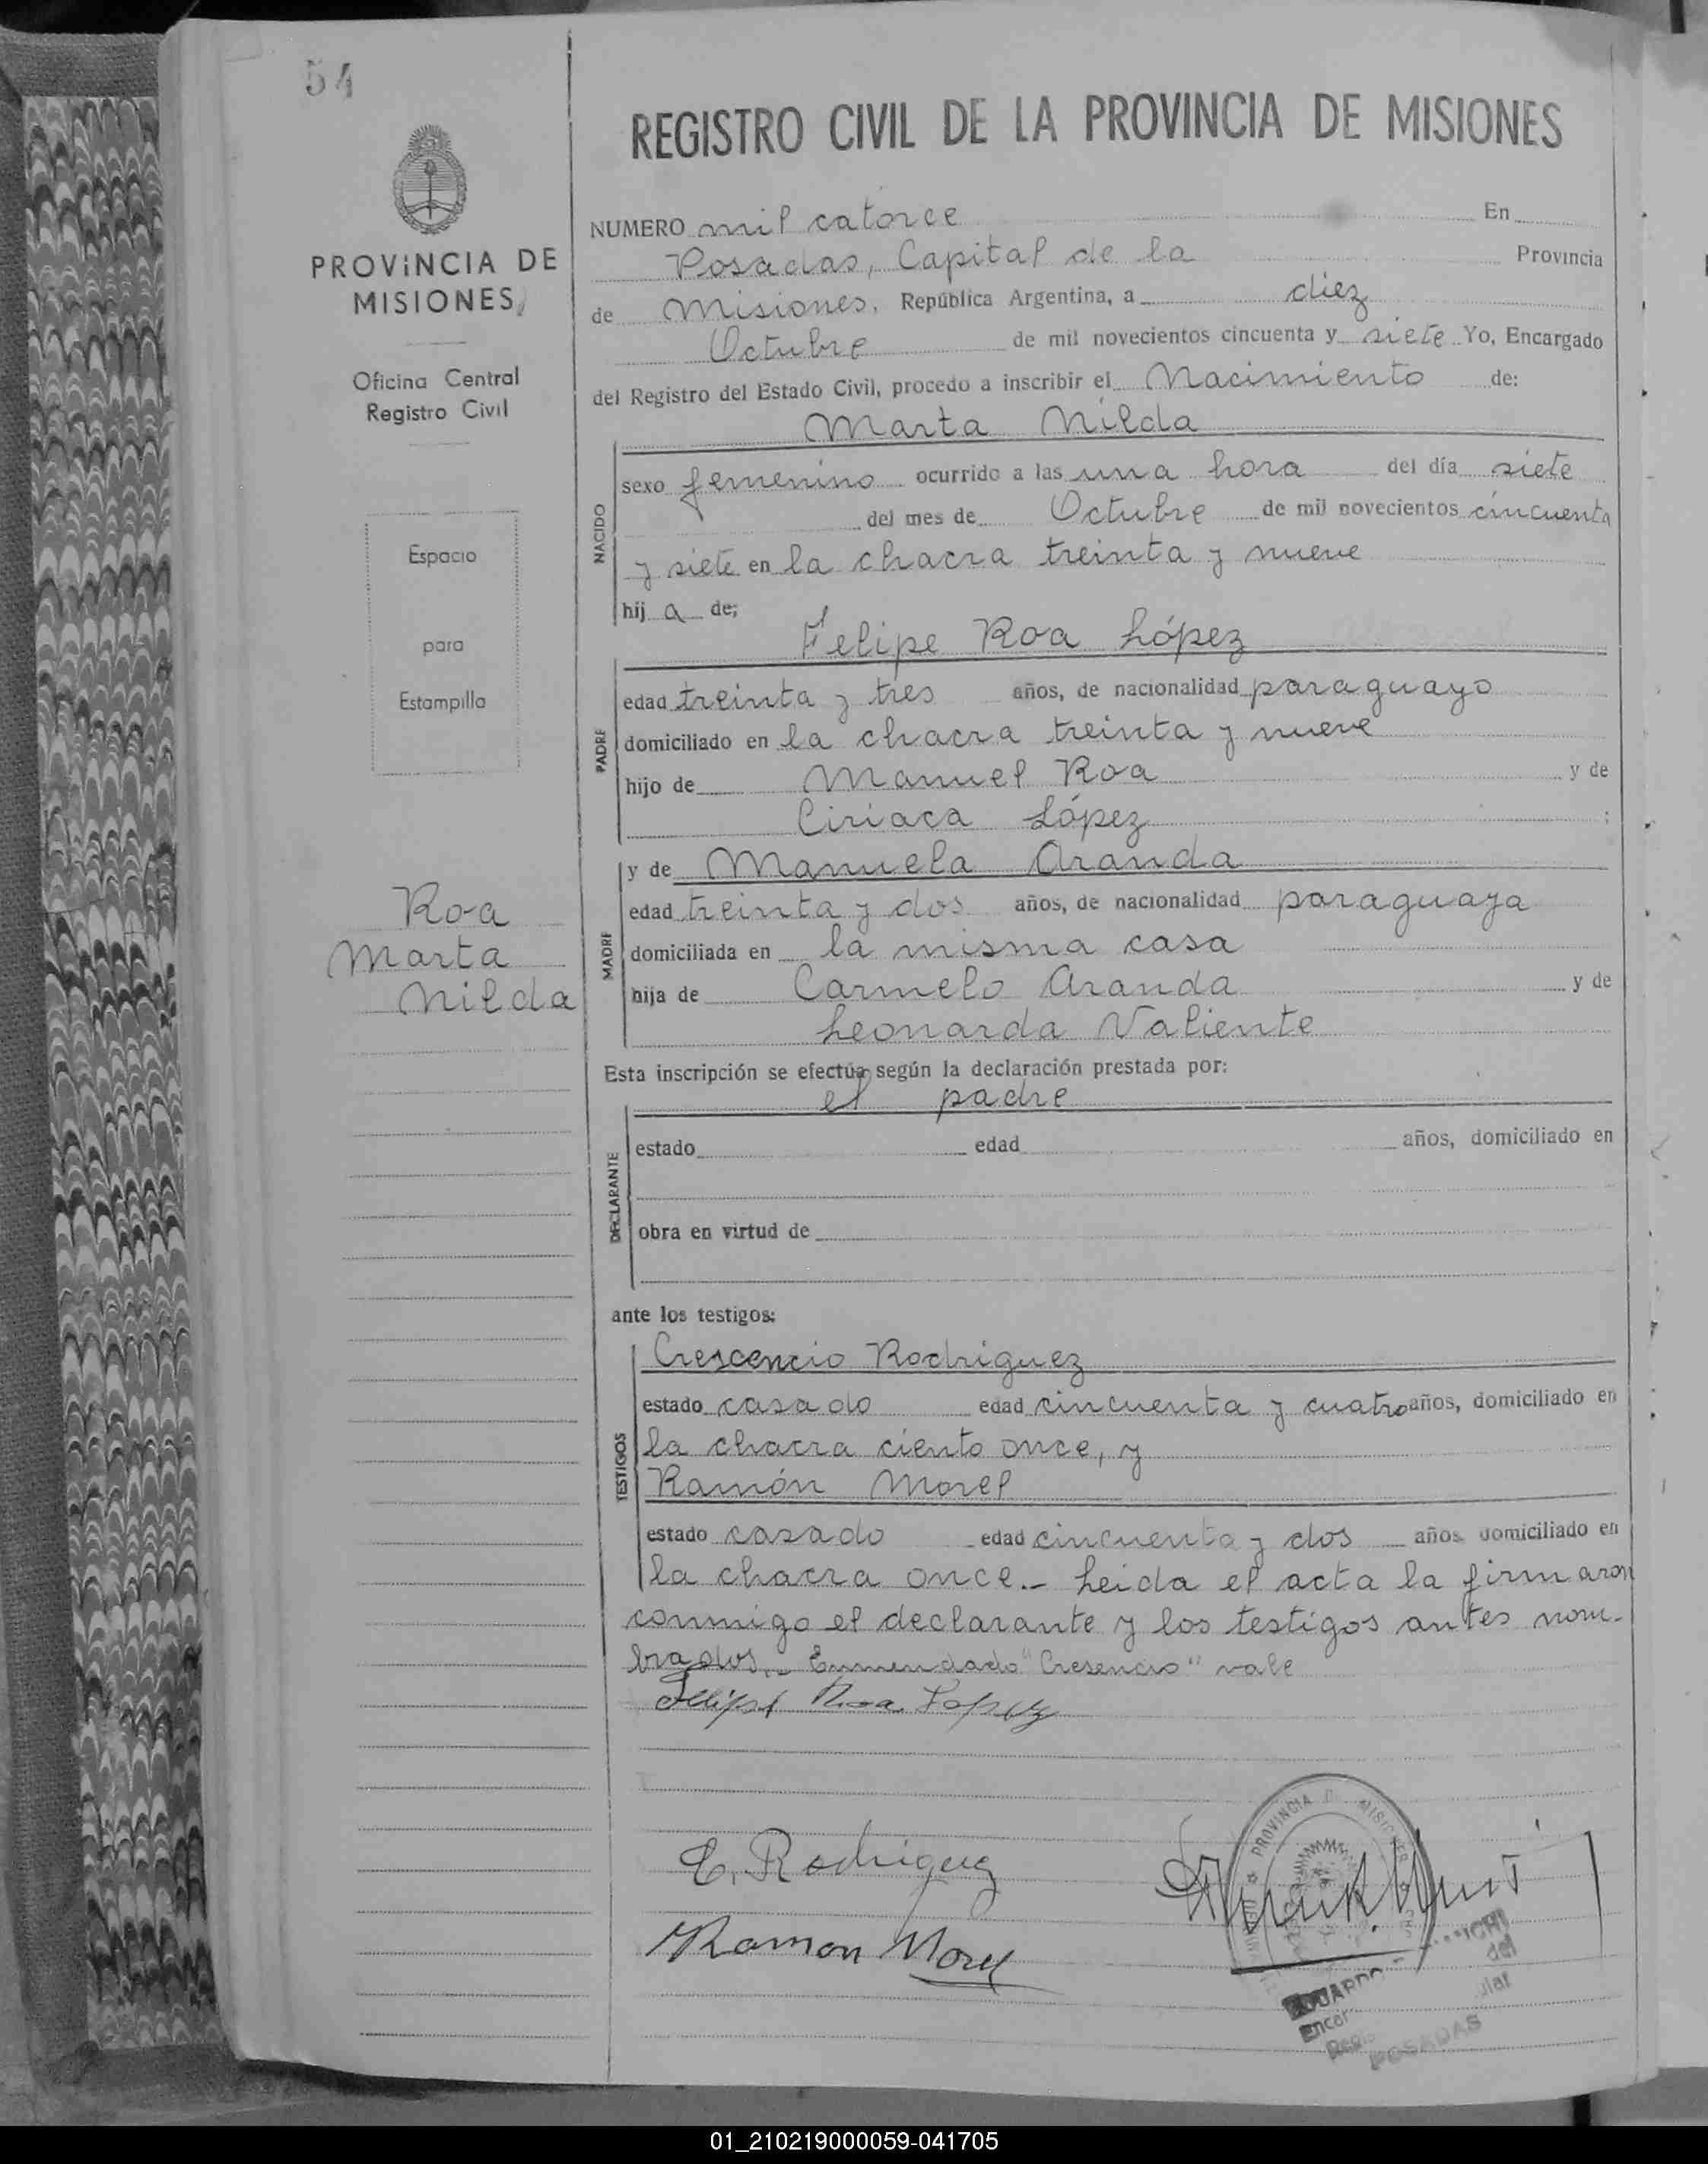 54
REGISTRO CIVIL DE LA PROVINCIA DE MISIONES
PROVINCIA DE
MISIONES
Oficina Central
Registro Civil
Espacio
para
Estampilla
Roa
Marta
Nilda
NUMERO mil catorce En
Posadas, Capital de la Provincia
de Misiones, República Argentina, a diez
Octubre de mil novecientos cincuenta y siete Yo, Encargado
del Registro del Estado Civil, procedo a inscribir el Nacimiento de:
Marta Nilda
NACIDO
sexo femenino ocurrido a las una hora del día siete
del mes de Octubre de mil novecientos cincuenta
y siete en la chacra treinta y nueve
hij a de;
Felipe Roa López
PADRE
edad treinta y tres años, de nacionalidad paraguayo
domiciliado en la chacra treinta y nueve
hijo de Manuel Roa y de
Ciriaca López ;
y de Manuela Aranda
MADRE
edad treinta y dos años, de nacionalidad paraguaya
domiciliada en la misma casa
hija de Carmelo Aranda y de
Leonarda Valiente
Esta inscripción se efectúa según la declaración prestada por:
el padre
DECLARANTE
estado edad años, domiciliado en
obra en virtud de
ante los testigos:
TESTIGOS
Crescencio Rodriguez
estado casado edad cincuenta y cuatro años, domiciliado en
la chacra ciento once, y
Ramón Morel
estado casado edad cincuenta y dos años domiciliado en
la chacra once.- Leida el acta la firmaron
conmigo el declarante y los testigos antes nom-
brados.- Enmendado "Cresencio" vale
Felipe Roa Lopez
C. Rodriguez
Ramon Morel
PROVINCIA D MISIONES
EDUARDO
Encar
del
Regis
POSADAS
01_210219000059-041705